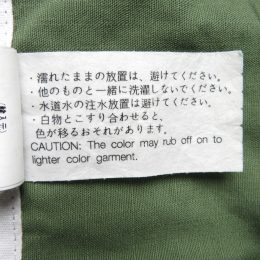 ・濡れたままの放置は、避けてください。
・他のものと一緒に洗濯しないでください。
・水道水の注水放置は、避けてください。
・白物とこすり合わせると、
色が移るおそれがあります。
CAUTION: The color may rub off on to
lighter color garment.